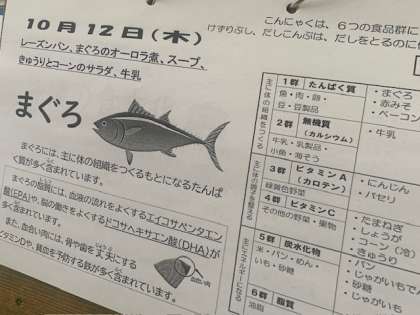 10月12日(木)
レーズンパン、まぐろのオーロラ煮、スープ、
きゅうりとコーンのサラダ、牛乳
まぐろ
まぐろには、主に体の組織をつくるもとになるたんぱ
く質が多く含まれています。
まぐろの脂質には、血液の流れをよくするエイコサペンタエン
酸(EPA)や、脳の働きをよくするドコサヘキサエン酸(DHA)が
多く含まれています。
また、血合い肉には、骨や歯を丈夫にする
ビタミンDや、貧血を予防する鉄が多く含まれています。
血合い肉
こんにゃくは、6つの食品群に
けずりぶし、だしこんぶは、だしをとるのに
主に体の組織をつくる
1群 たんぱく質
魚・肉・卵・
豆・豆製品
・まぐろ
・赤みそ
・ベーコン
2群 無機質
(カルシウム)
牛乳・乳製品・
小魚・海そう
・牛乳
主に体の調子を整える
3群 ビタミンA
(カロテン)
緑黄色野菜
・にんじん
・パセリ
4群 ビタミンC
その他の野菜・果物
・たまねぎ
・しょうが
・コーン(冷)
・きゅうり
主にエネルギーになる
5群 炭水化物
米・パン・めん・
いも・砂糖
・パン
・じゃがいもでん
・じゃがいも
・砂糖
6群 脂質
油脂